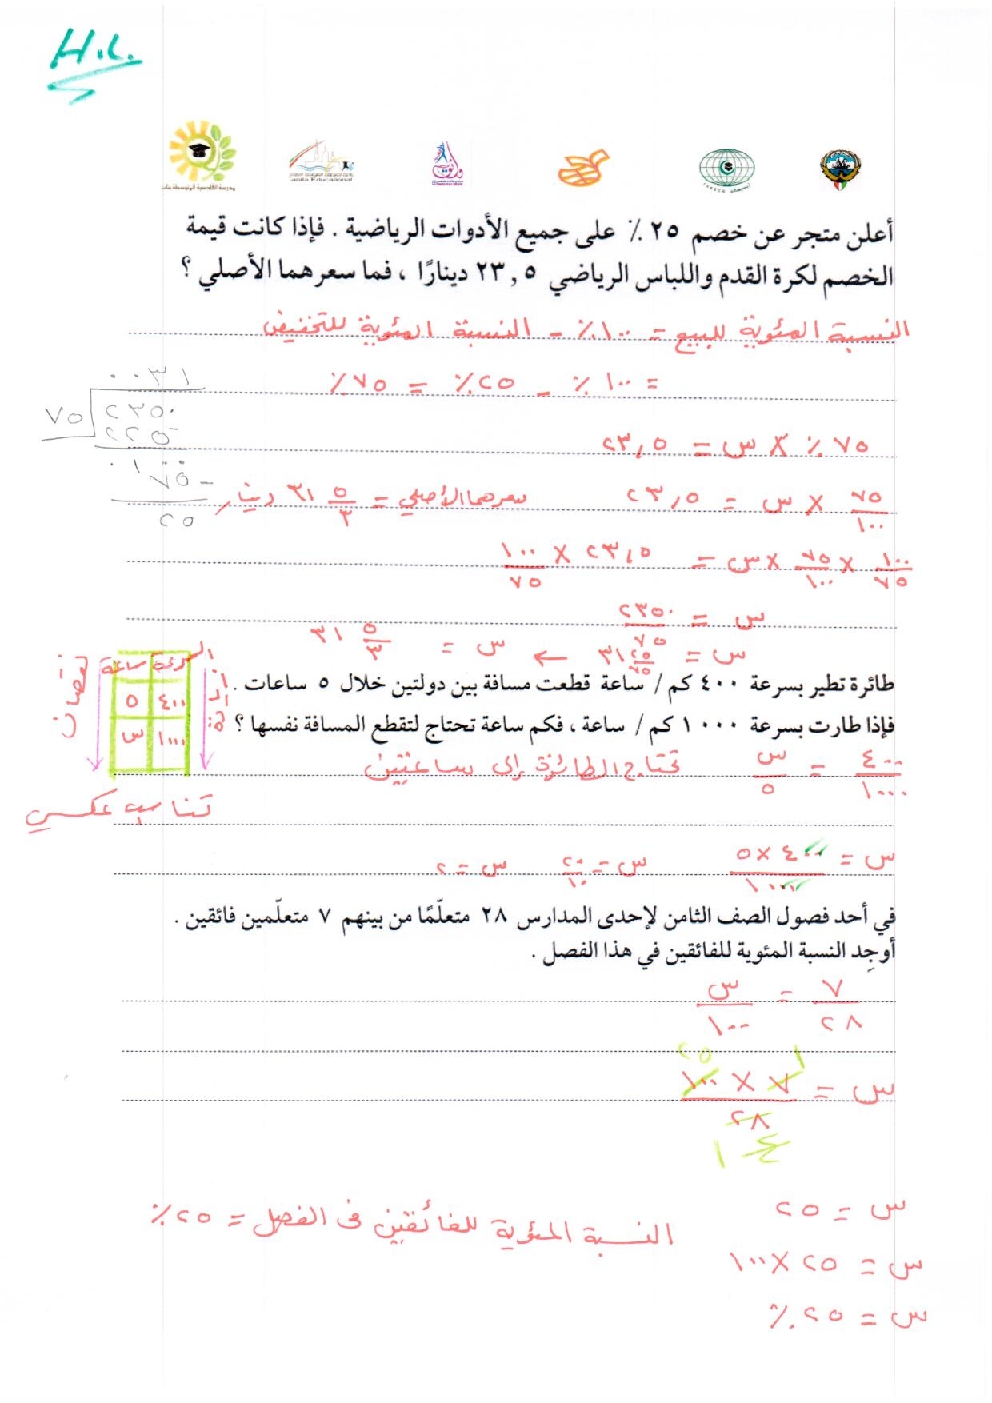 H.L.
أعلن متجر عن خصم ٢٥ ٪ على جميع الأدوات الرياضية . فإذا كانت قيمة
الخصم لكرة القدم واللباس الرياضي ٢٣,٥ دينارًا ، فما سعرهما الأصلي ؟
النسبة المئوية للبيع = ١٠٠٪ - النسبة المئوية للتخفيض
= ١٠٠٪ - ٢٥٪ = ٧٥٪
٠٠٣١
٧٥ ٢٣٥٠
٢٢٥
٠١٠٠
٧٥ -
٢٥
٧٥٪ × س = ٢٣,٥
٧٥/١٠٠ × س = ٢٣,٥
سعرهما الأصلي = ٣١ ٥/٣ دينار
١٠٠/٧٥ × ٧٥/١٠٠ × س = ٢٣,٥ × ١٠٠/٧٥
س = ٢٣٥٠/٧٥
س = ٣١ ٢٥/٧٥ ← س = ٣١ ٥/٣
طائرة تطير بسرعة ٤٠٠ كم / ساعة قطعت مسافة بين دولتين خلال ٥ ساعات .
فإذا طارت بسرعة ١٠٠٠ كم / ساعة ، فكم ساعة تحتاج لتقطع المسافة نفسها ؟
السرعة ساعة
٤٠٠ ٥
١٠٠٠ س
نقصان
تناسب عكسي
٤٠٠/١٠٠٠ = س/٥
تحتاج الطائرة إلى ساعتين
س = ٤٠٠×٥/١٠٠٠ س = ٢٠/١٠ س = ٢
في أحد فصول الصف الثامن لإحدى المدارس ٢٨ متعلّمًا من بينهم ٧ متعلّمين فائقين .
أوجِد النسبة المئوية للفائقين في هذا الفصل .
٧/٢٨ = س/١٠٠
س = ٧ × ١٠٠/٢٨
١ ٢٥
٤ ١
س = ٢٥
النسبة المئوية للفائقين فى الفصل = ٢٥٪
س = ٢٥×١٠٠
س = ٢٥٪